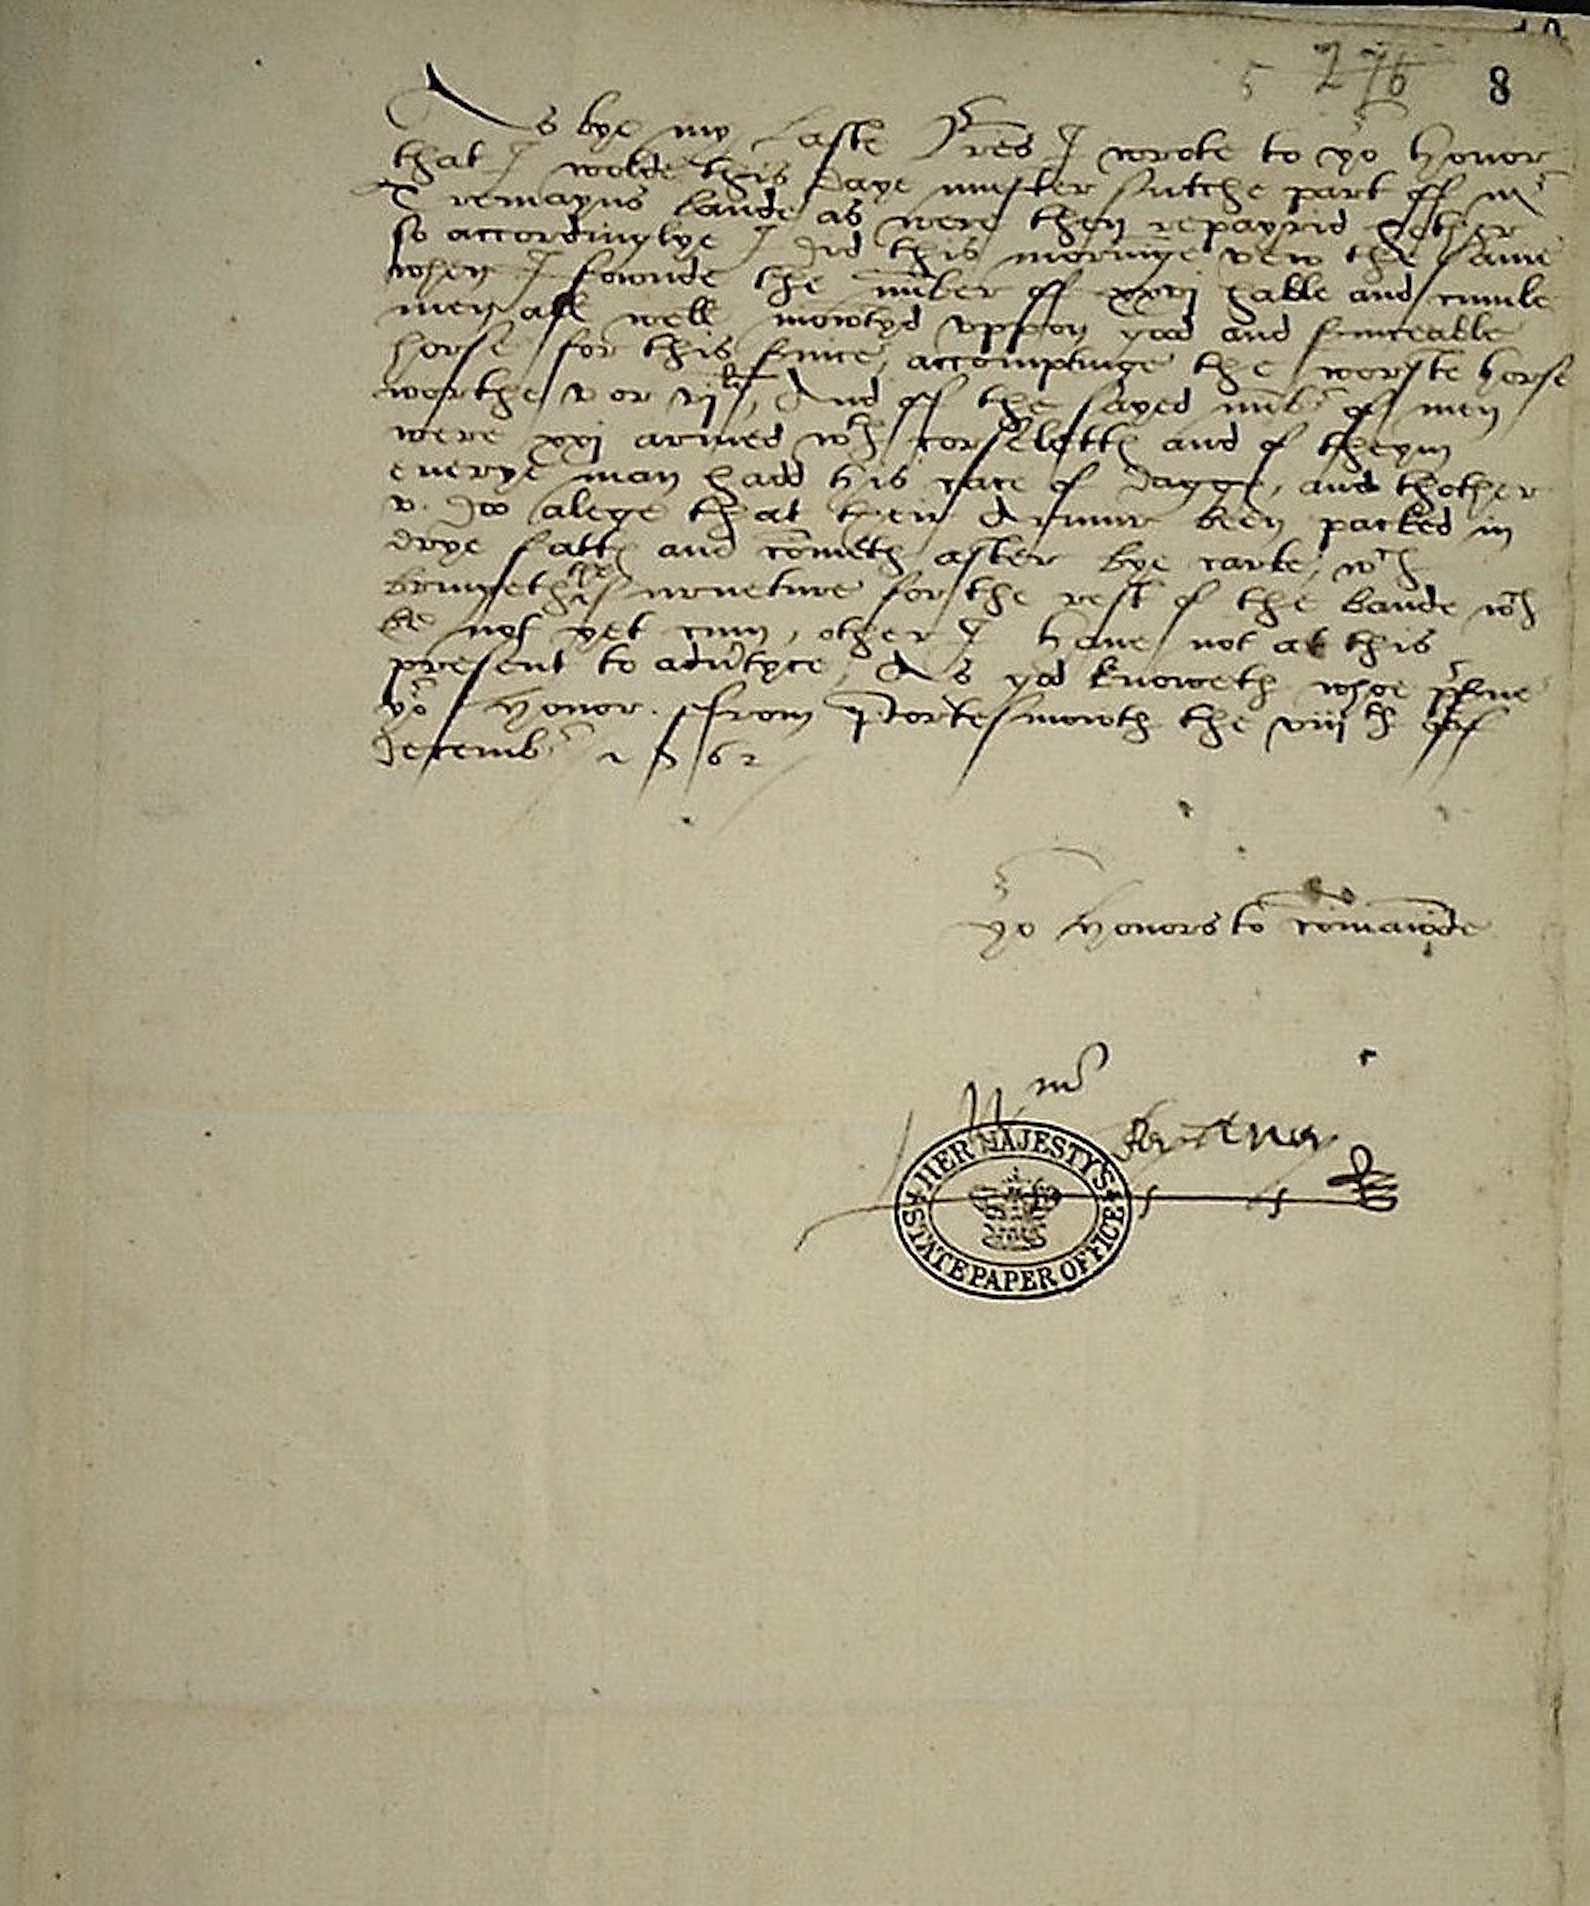 5 276 8
As bye my laste lres I wrote to yor honor
that I wolde this daye muster sutche part off mr
Tremayns bande as were then repayrid hether
so accordinglye I did this morninge vew the same
when I fownde the nuber off xxvj hable and cumle
men all well mowtyd vppon good and seruiceable
horse for this seruice, accomptinge the worste horse
worthe v or vjli, And off the sayed nubr of men
were xxj armed wth corselettes and of theym
euerye man hadd his cace of dagges, and thother
v. do alege that their Armur been packed in
drye fattes and cometh after bye carte, wch
bringeth the furneture for the rest of the bande wch
be not yet cum, other I have not at this
present to aduertyce, As god knoweth whoe prserue
yor honor. ffrom Portesmowth the viijth off
decembr 1562
yor honors to comaunde
Wm
HER MAJESTY'S STATE PAPER OFFICE